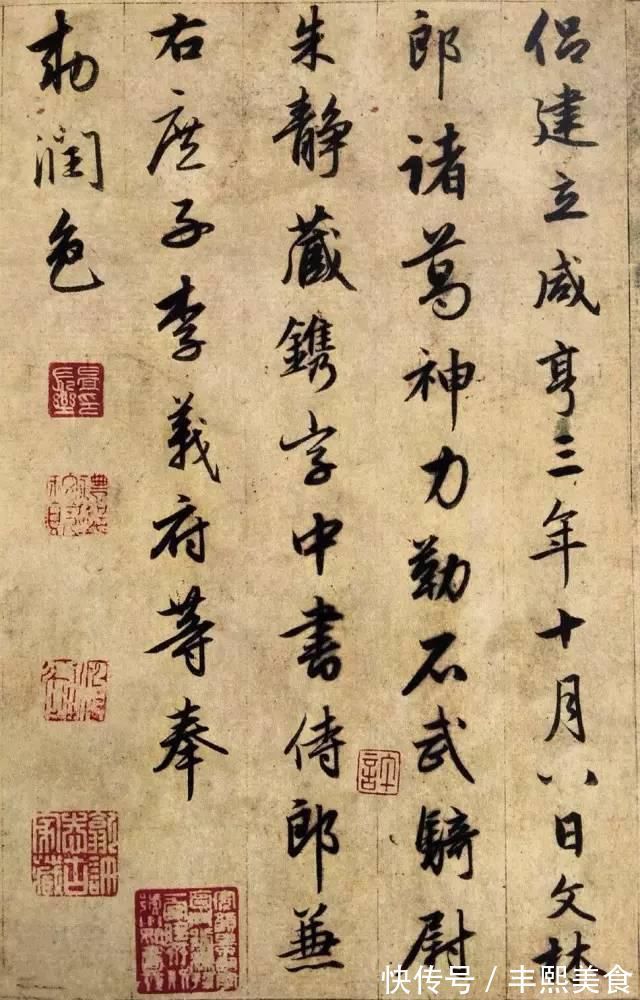 侶建立咸亨三年十月八日文林
郎諸葛神力勒石武騎尉
朱靜藏鐫字中書侍郎兼
右庶子李義府等奉
勅潤色
許
快传号 / 丰熙美食